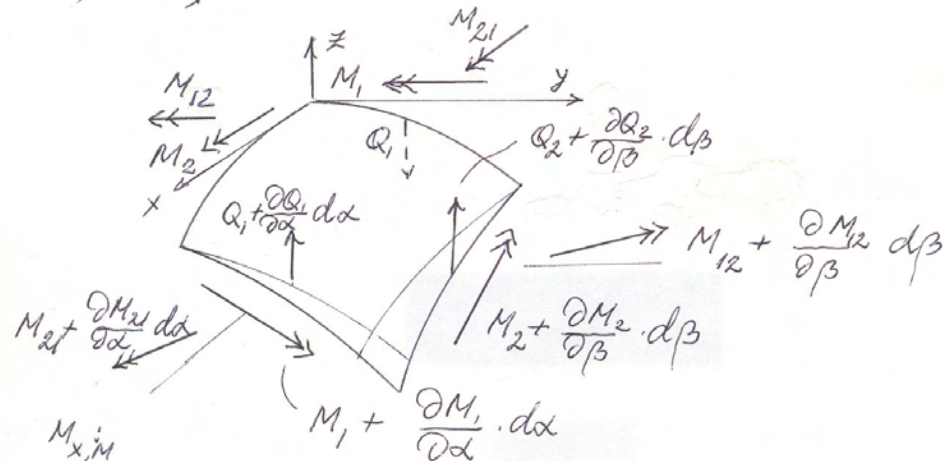 z
M₂₁
M₁
y
M₁₂
M₂
x
Q₁
Q₂ + ∂Q₂/∂β · dβ
Q₁ + ∂Q₁/∂α dα
M₁₂ + ∂M₁₂/∂β dβ
M₂₁ + ∂M₂₁/∂α dα
M₂ + ∂M₂/∂β · dβ
M₁ + ∂M₁/∂α · dα